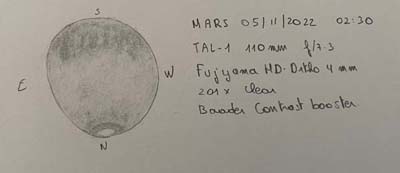 S
MARS 05/11/2022 02:30
TAL-1 110mm f/7.3
Fujiyama HD-Ortho 4mm
E
W
201x Clear
Baader Contrast booster
N